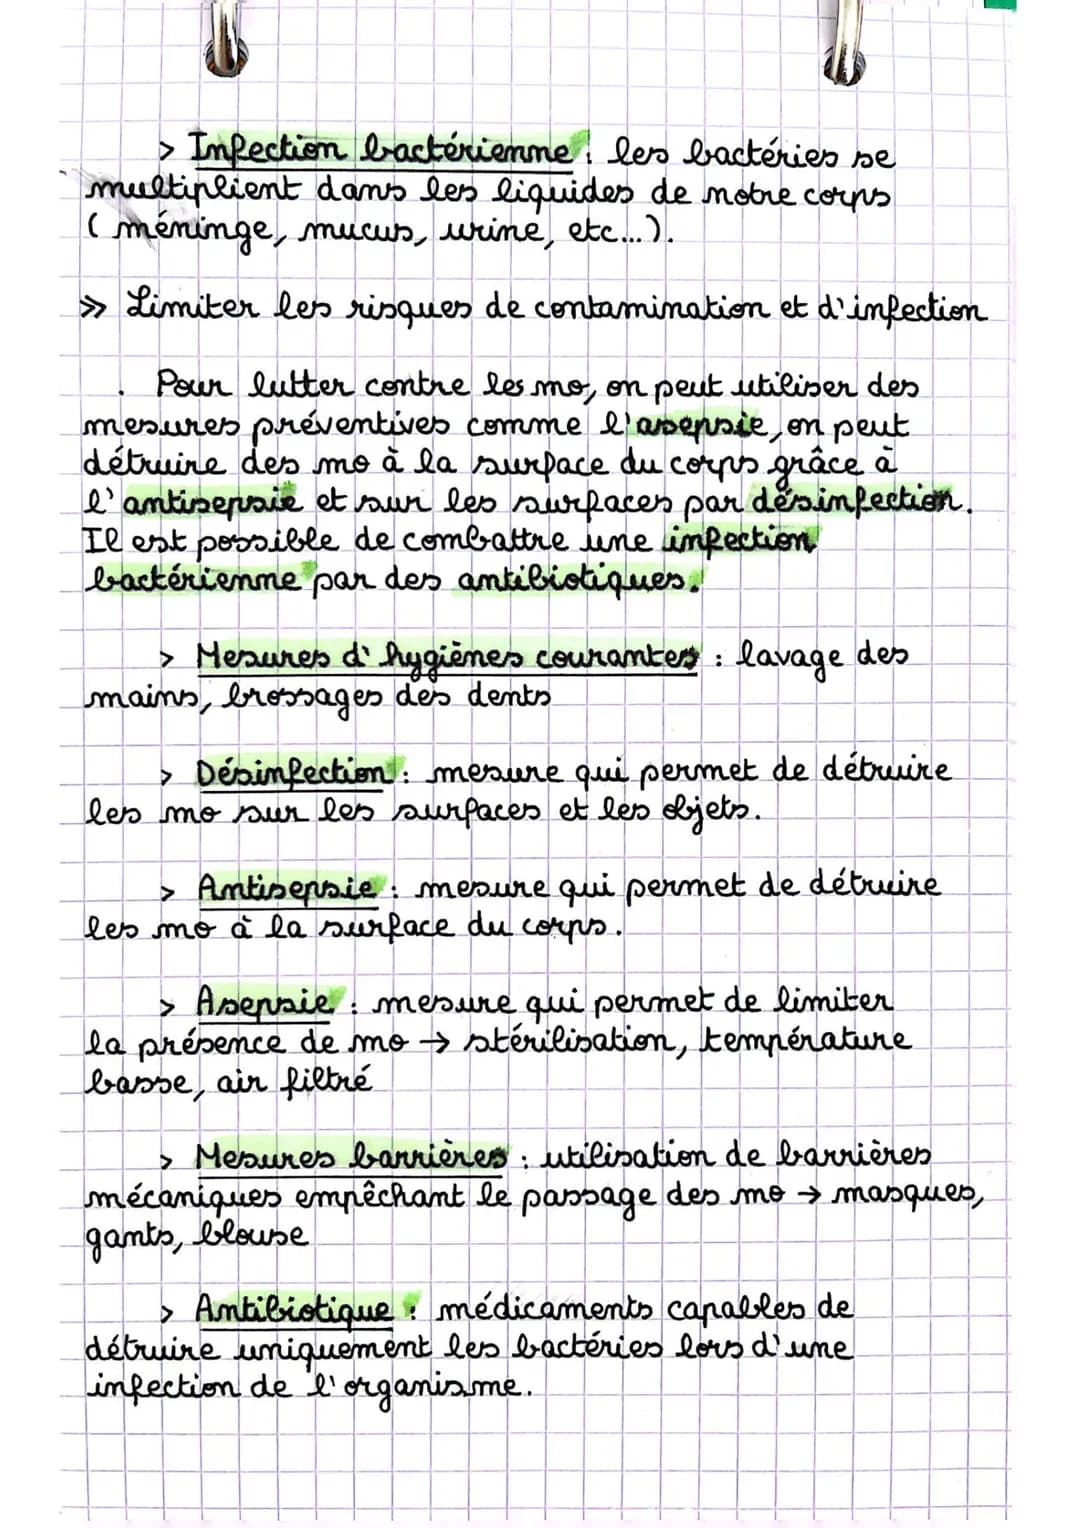 > Infection bactérienne : les bactéries se
multiplient dans les liquides de notre corps
( méninge, mucus, urine, etc...).
>> Limiter les risques de contamination et d'infection
. Pour lutter contre les mo, on peut utiliser des
mesures préventives comme l'asepsie, on peut
détruire des mo à la surface du corps grâce à
l'antisepsie et sur les surfaces par désinfection.
Il est possible de combattre une infection
bactérienne par des antibiotiques.
> Mesures d'hygiènes courantes : lavage des
mains, brossages des dents
> Désinfection : mesure qui permet de détruire
les mo sur les surfaces et les objets.
> Antisepsie : mesure qui permet de détruire
les mo à la surface du corps.
> Asepsie : mesure qui permet de limiter
la présence de mo → stérilisation, température
basse, air filtré
> Mesures barrières : utilisation de barrières
mécaniques empêchant le passage des mo → masques,
gants, blouse
> Antibiotique : médicaments capables de
détruire uniquement les bactéries lors d'une
infection de l'organisme.